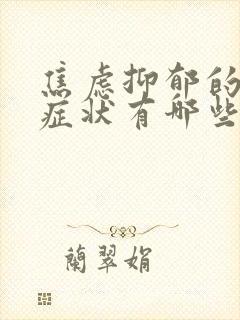 焦虑抑郁的
症状有哪些
蘭翠娟